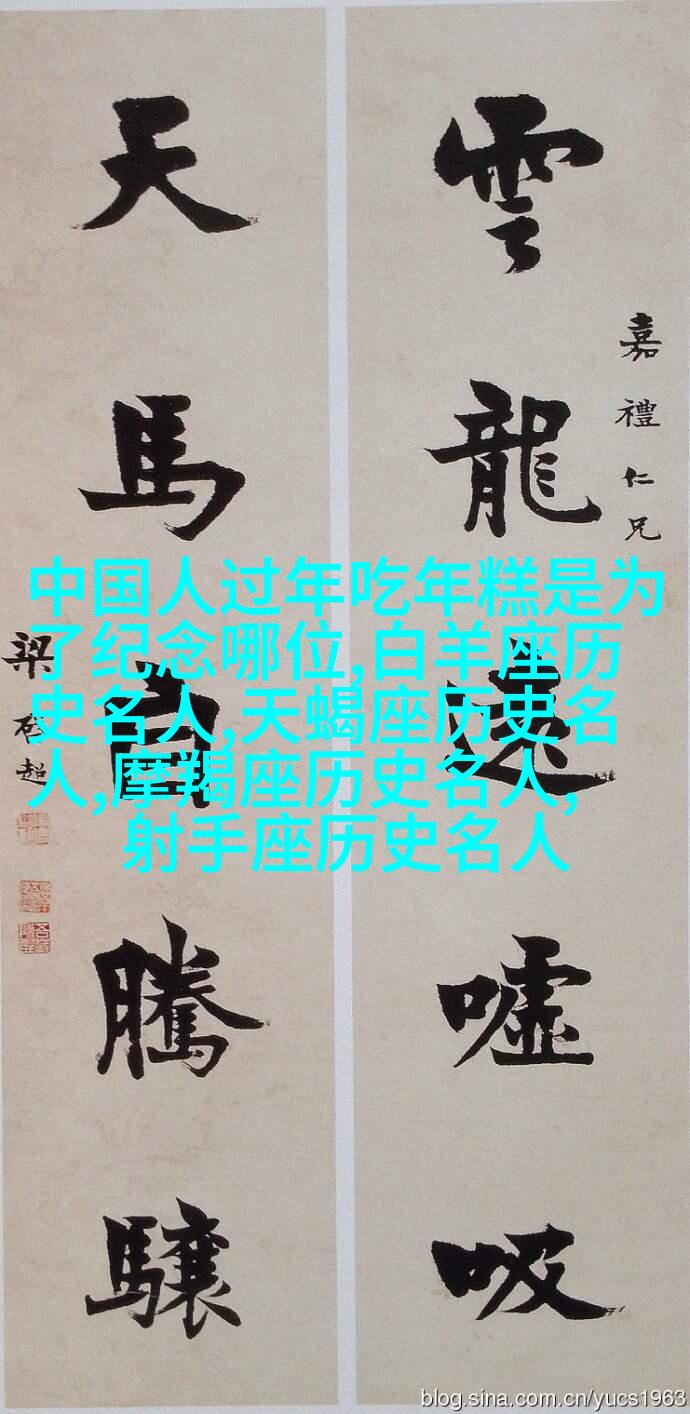 雲龍遠嘘吸
嘉禮仁兄
天馬自騰驤
梁啓超
中国人过年吃年糕是为
了纪念哪位,白羊座历
史名人,天蝎座历史名
人,摩羯座历史名人,
射手座历史名人
blog.sina.com.cn/yucs1963